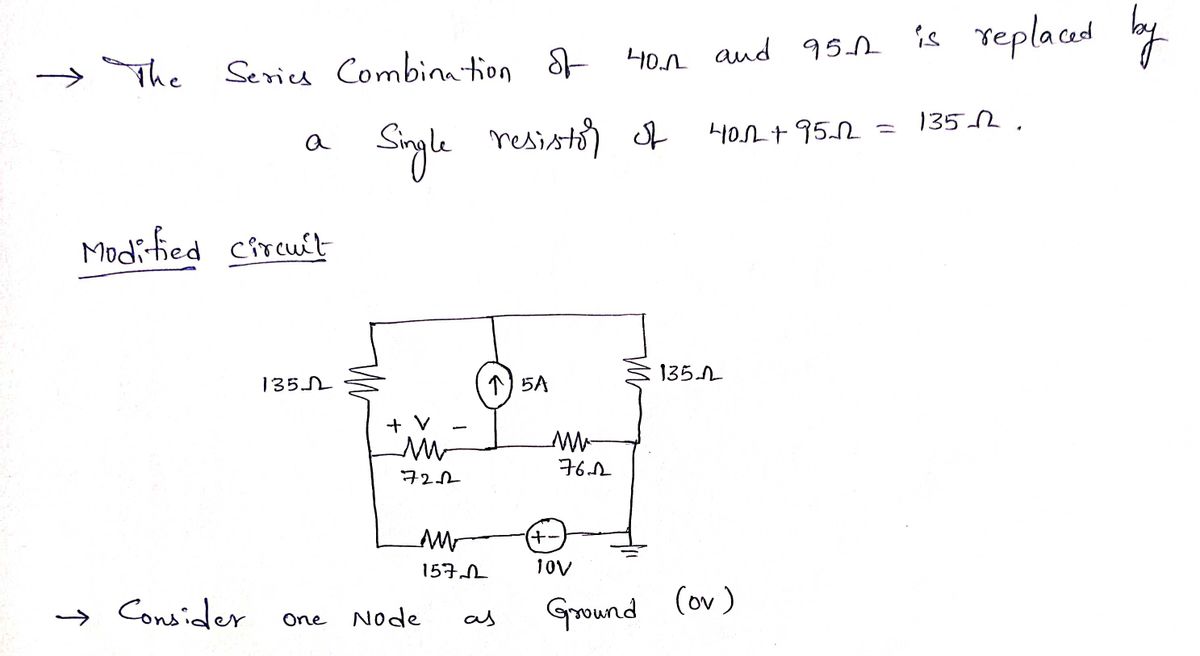 → The Series Combination of 40Ω and 95Ω is replaced by
a Single resistor of 40Ω + 95Ω = 135Ω.
Modified circuit
135Ω
↑ 5A
135Ω
+ V -
72Ω
76Ω
+-
157Ω
10V
→ Consider one Node as Ground (0V)